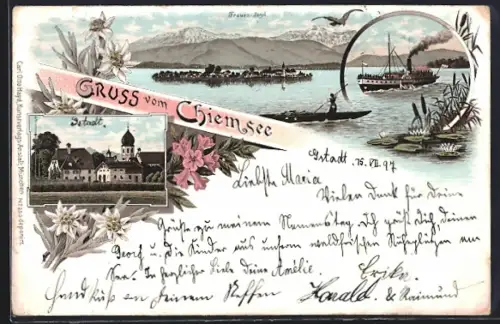 Frauen-Insel
GRUSS vom Chiemsee
Gstadt.
Gstadt, 15. VII. 97
Liebste Maria
Vielen Dank für Deine
Grüße zu meinem Namenstag. Ich grüß Dich, Deinen
Georg u. die Kinder aus unserm waldfrischen am
See. In herzlicher Liebe Deine Amélie.
Erika
Handkuß an Deinem Neffen Harald & Raimund
Carl Otto Hayd, Kunstverlags-Anstalt, München